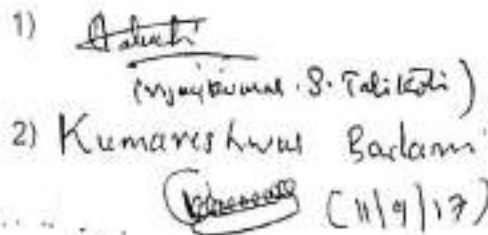 1)
(Vijaykumar. S. Talikoti)
2) Kumareshwar Badami
(11/9/17)